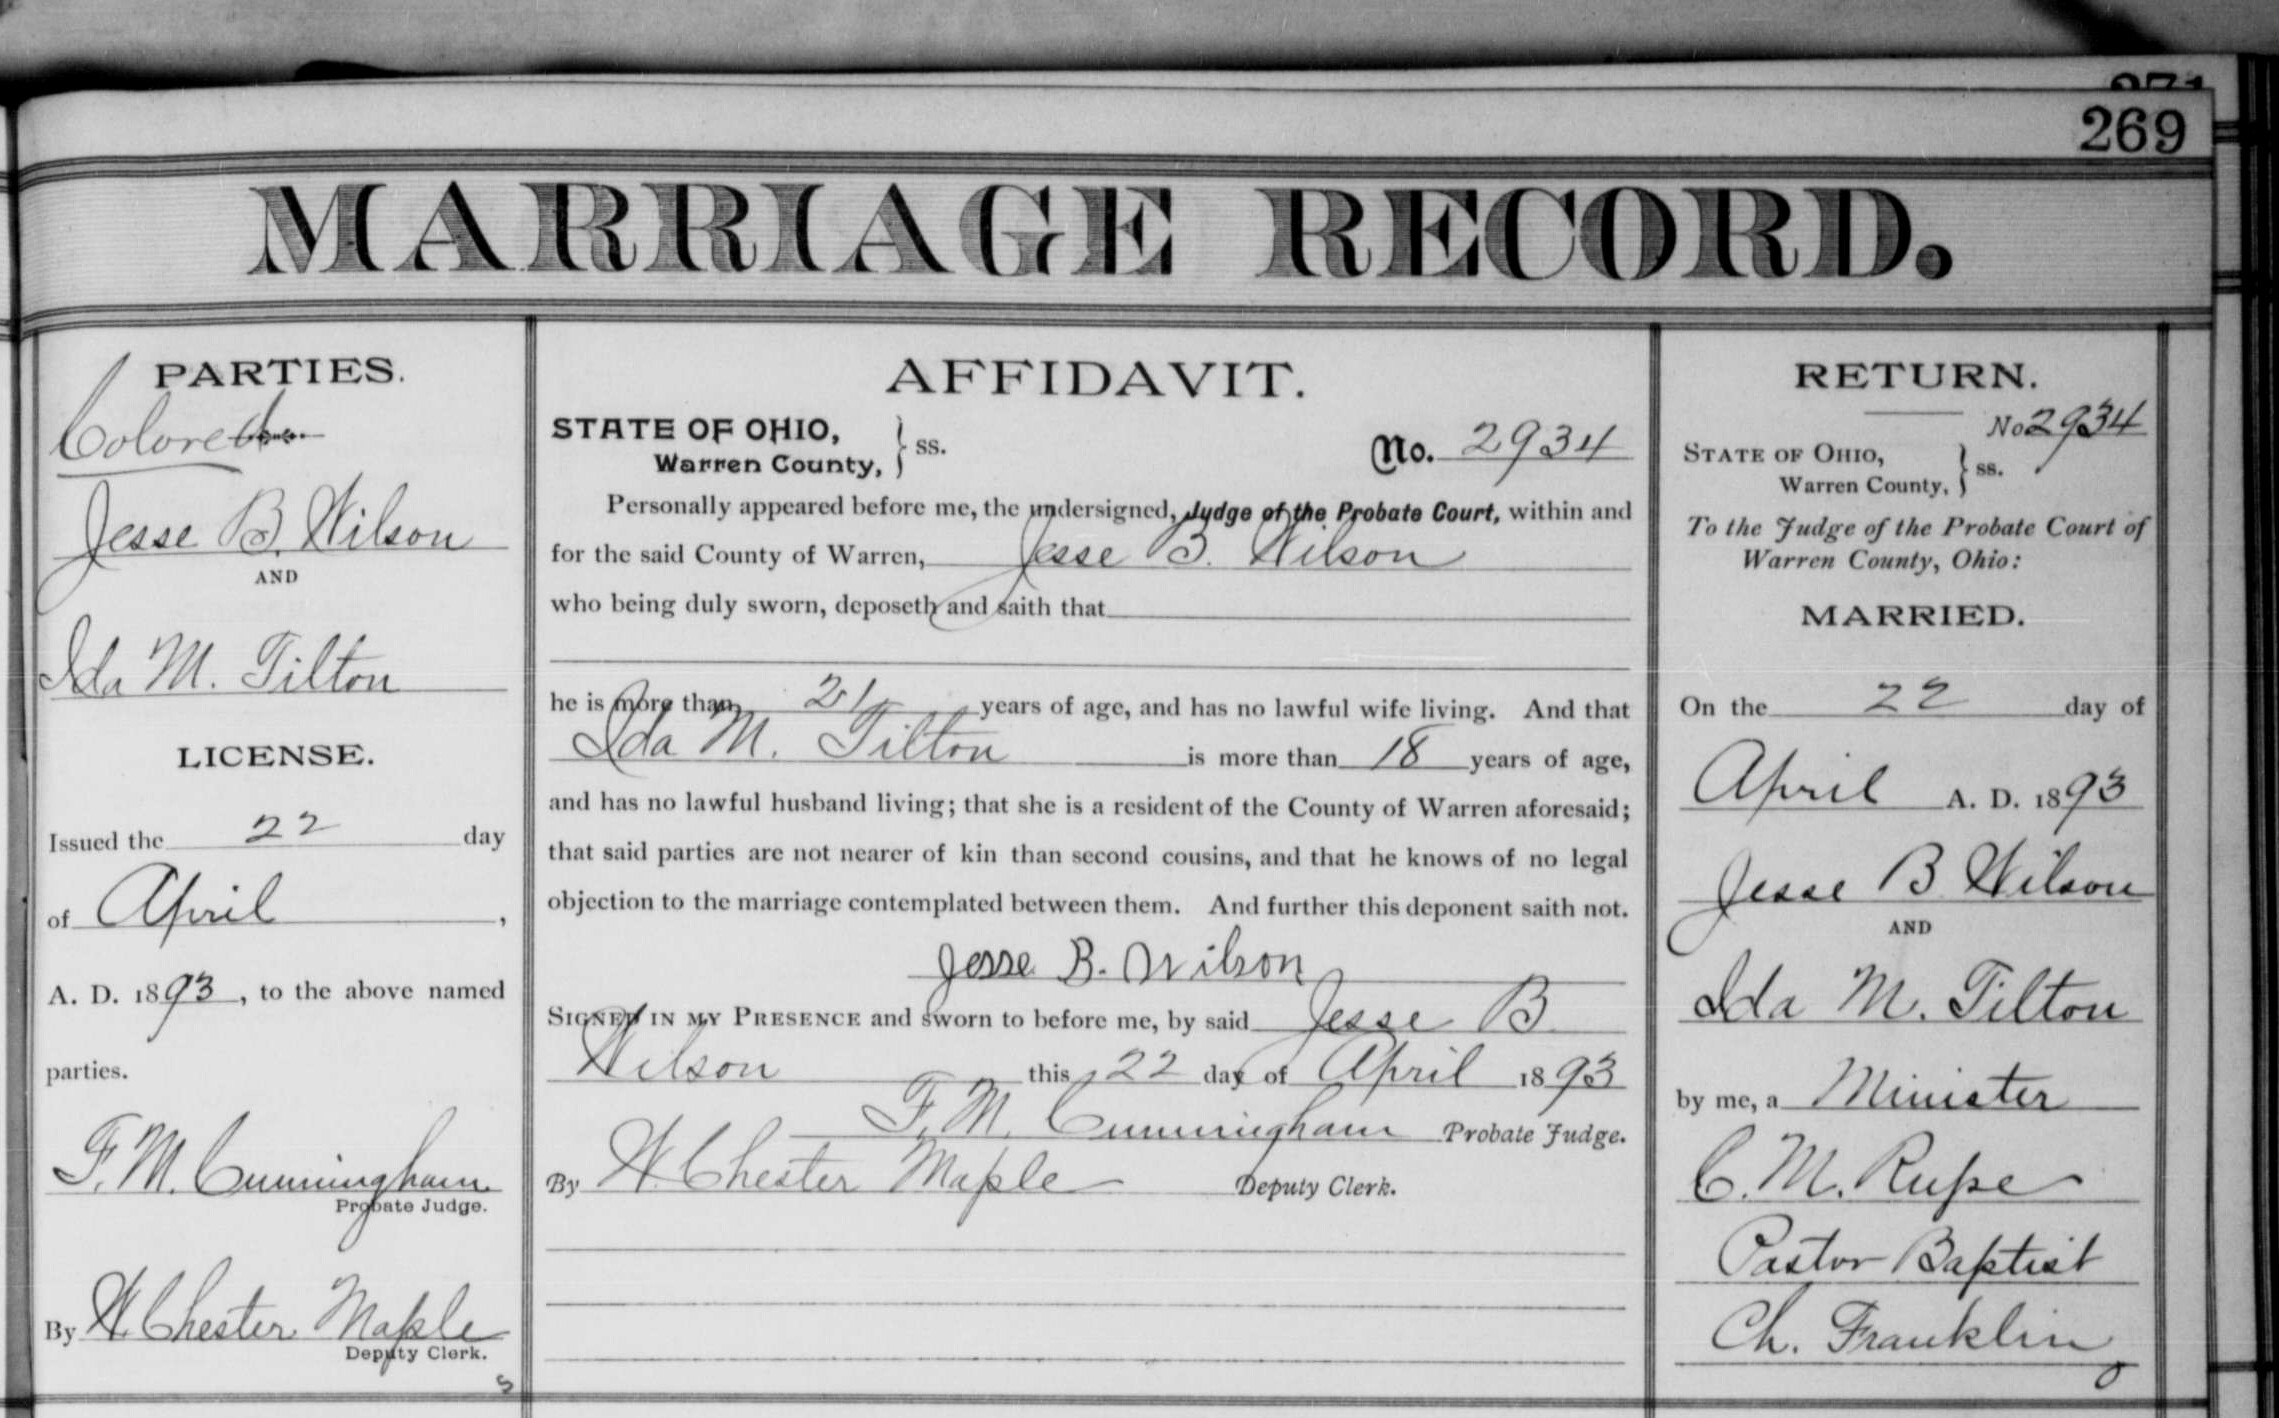 269
MARRIAGE RECORD.
PARTIES.
Colored
Jesse B. Wilson
AND
Ida M. Tilton
LICENSE.
Issued the 22 day
of April,
A. D. 1893, to the above named
parties.
F. M. Cunningham
Probate Judge.
By W. Chester Maple
Deputy Clerk.
AFFIDAVIT.
STATE OF OHIO, } ss.
Warren County,
No. 2934
Personally appeared before me, the undersigned, Judge of the Probate Court, within and
for the said County of Warren, Jesse B. Wilson
who being duly sworn, deposeth and saith that
he is more than 21 years of age, and has no lawful wife living. And that
Ida M. Tilton is more than 18 years of age,
and has no lawful husband living; that she is a resident of the County of Warren aforesaid;
that said parties are not nearer of kin than second cousins, and that he knows of no legal
objection to the marriage contemplated between them. And further this deponent saith not.
Jesse B. Wilson
SIGNED IN MY PRESENCE and sworn to before me, by said Jesse B.
Wilson this 22 day of April 1893
F. M. Cunningham Probate Judge.
By W. Chester Maple Deputy Clerk.
RETURN.
No 2934
STATE OF OHIO, } ss.
Warren County,
To the Judge of the Probate Court of
Warren County, Ohio:
MARRIED.
On the 22 day of
April A. D. 1893
Jesse B Wilson
AND
Ida M. Tilton
by me, a Minister
C. M. Rupe
Pastor Baptist
Ch. Franklin